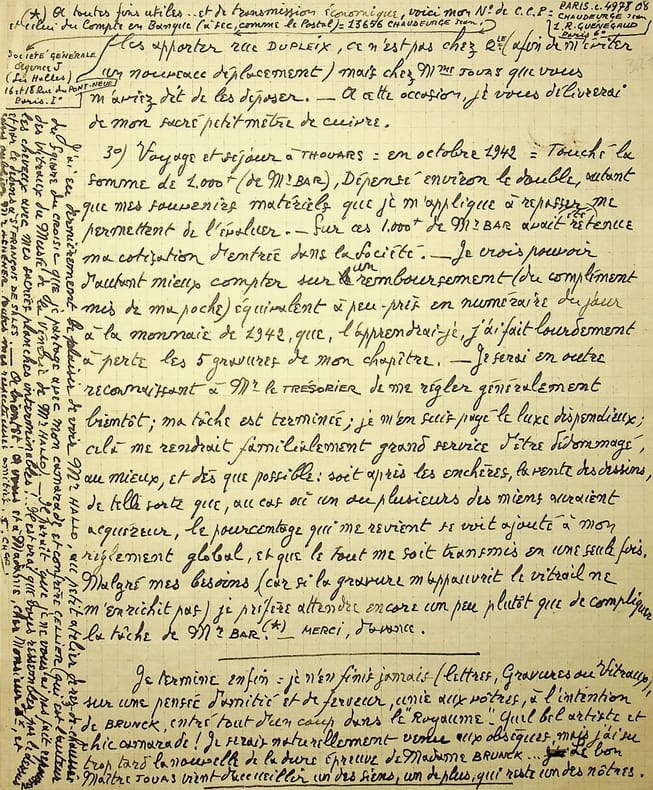 (*) A toutes fins utiles.. et de transmission économique, voici mon No de C.C.P = PARIS.C.4978 08
et celui du Compte en Banque (à sec, comme le Postal) = 13656 CHAUDEURGE Jean
CHAUDEURGE Jean
1.R.GUÉNÉGAUD
Paris 6e
SOCIÉTÉ GÉNÉRALE
Agence J
(Les Halles)
16 et 18 Rue du PONT-NEUF
Paris. Ie
les apporter rue DUPLEIX, ce n'est pas chez (afin de m'éviter
un nouveau déplacement) mais chez Mme JOUAS que vous
m'aviez dit de les déposer. — A cette occasion, je vous délivrerai
de mon sacré petit mètre de cuivre.
3o) Voyage et séjour à THOUARS = en octobre 1942 = Touché la
somme de 1.000f (de Mr BAR), Dépensé environ le double, autant
que mes souvenirs matériels que je m'applique à repasser me
permettent de l'évaluer. — Sur ces 1.000f de Mr BAR avait été retenue
ma cotisation d'entrée dans la Société. — Je crois pouvoir
d'autant mieux compter sur un remboursement (du complément
mis de ma poche) équivalent à peu-près en numéraire du jour
à la monnaie de 1942, que, l'apprendrai-je, j'ai fait lourdement
à perte les 5 gravures de mon chapître. — Je serai en outre
reconnaissant à Mr LE TRÉSORIER de me régler généralement
bientôt; ma tâche est terminée; je m'en suis payé le luxe dispendieux;
celà me rendrait familialement grand service d'être dédommagé,
au mieux, et dès que possible: soit après les enchères, la vente des dessins,
de telle sorte que, au cas où un ou plusieurs des miens auraient
acquéreur, le pourcentage qui me revient se voit ajouté à mon
règlement global, et que le tout me soit transmis en une seule fois.
Malgré mes besoins (car si la gravure m'appauvrit le vitrail ne
m'enrichit pas) je préfère attendre encore un peu plutôt que de compliquer
la tâche de Mr BAR. (*) — MERCI, d'avance.
Je termine enfin = je n'en finis jamais (lettres, Gravures ou Vitraux),
sur une pensée d'amitié et de ferveur, unie aux vôtres, à l'intention
de BRUNCK, entré tout d'un coup dans le "Royaume". Quel bel artiste et
chic camarade! Je serais naturellement venu aux obsèques, mais j'ai su
trop tard la nouvelle de la dure épreuve de Madame BRUNCK ... Le bon
Maître JOUAS vient d'accueillir un des siens, un de plus, qui reste un des nôtres.
J'ai eu dernièrement le plaisir de voir Mr HALLO au petit atelier de rez-de-chaussée
du Square du que je partage avec mon camarade et confrère CELLIER qui est l'auteur
des vitraux du Musée de la Vénerie de Mr HALLO
les cheveux avec mes sacrées planches interminables!